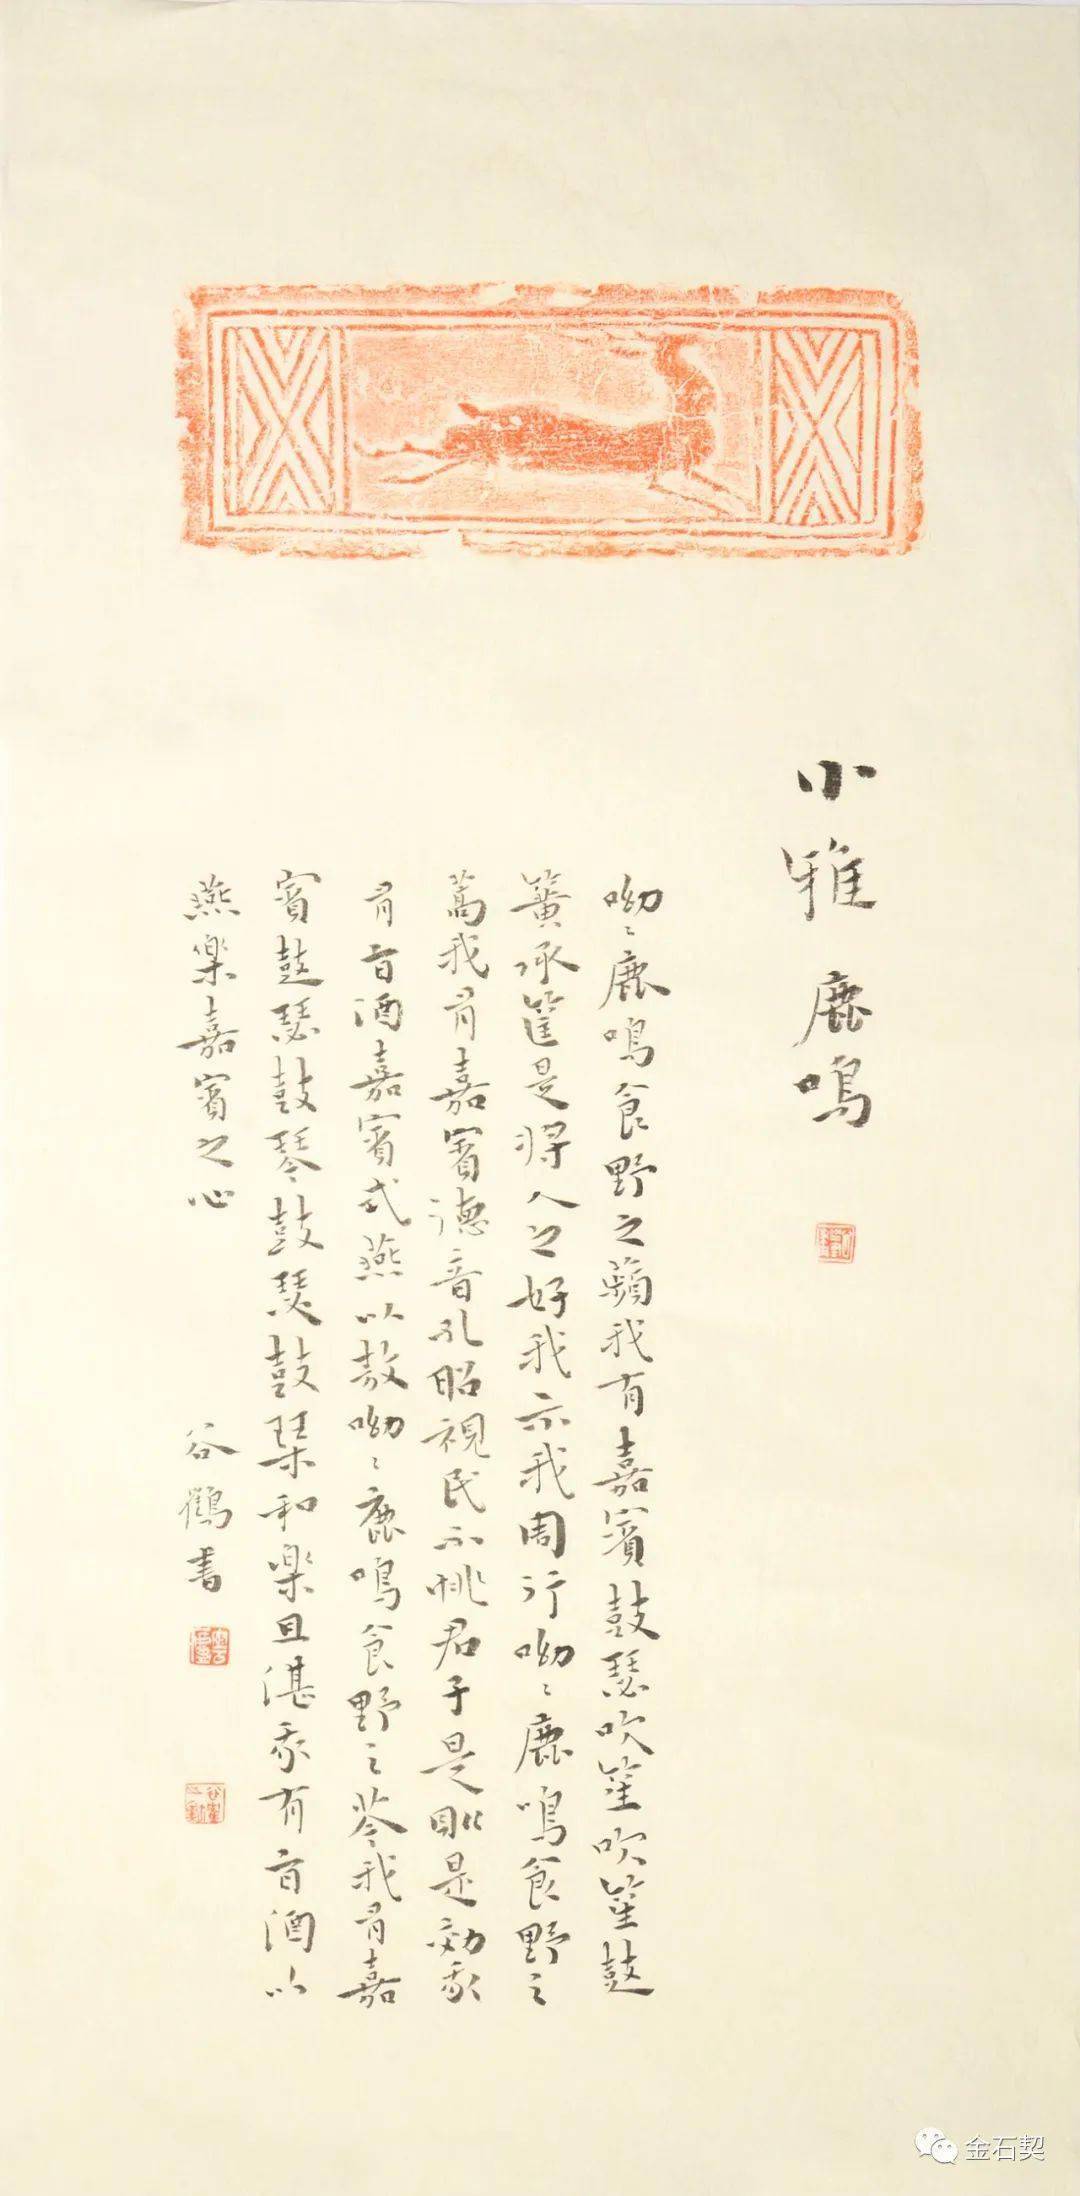 小雅 鹿鳴
呦〻鹿鳴食野之蘋我有嘉賓鼓瑟吹笙吹笙鼓
簧承筐是將人之好我示我周行呦〻鹿鳴食野之
蒿我有嘉賓德音孔昭視民不恌君子是則是效我
有旨酒嘉賓式燕以敖呦〻鹿鳴食野之芩我有嘉
賓鼓瑟鼓琴鼓瑟鼓琴和樂且湛我有旨酒以
燕樂嘉賓之心
谷鶴書
金石契